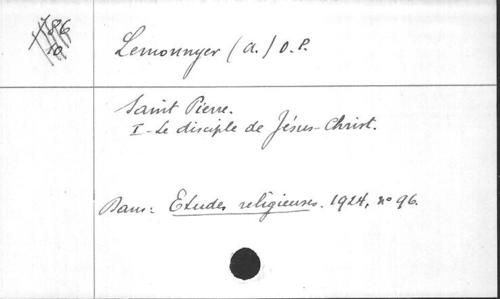 786
10
Lemonnyer (A.) O.P.
Saint Pierre.
I - Le disciple de Jésus-Christ.
Dans: Etudes religieuses. 1924, n° 96.